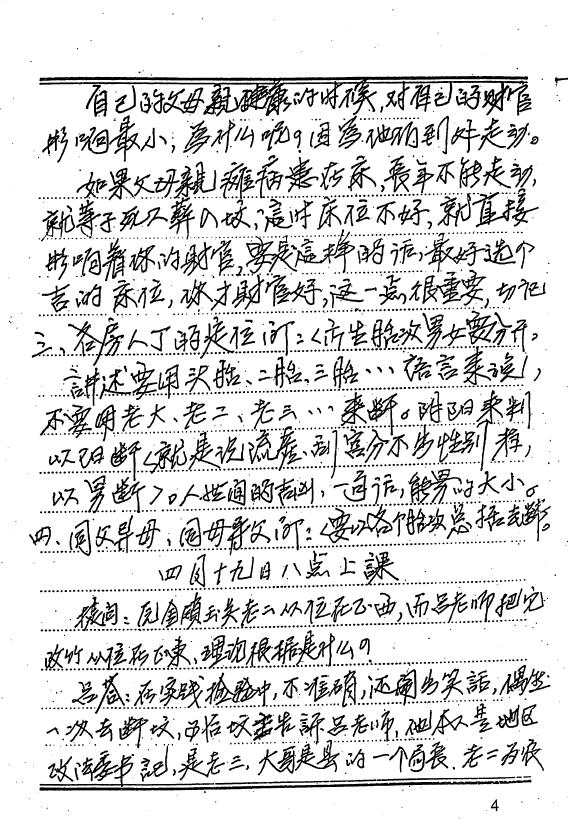 自己的父母親健康的时候,对自己的财官
影响最小,為什么呢?因為他们到处走动。
如果父母親瘫病患在床,長年不能走动,
就等于死人葬入坟,這时床位不好,就直接
影响着你的财官,要是這样的话,最好选个
吉的床位,你才财官好,这一点很重要,切记
三、各房人丁的定位问:(所生胎次男女要分开。
講述要用头胎、二胎、三胎…語言来谈),
不要用老大、老二、老三…来断。阴阳来判
以阳断(就是说流産、刮宫分不出性别者,
以男断)。人世间的吉凶,一句话,能界的大小。
四、同父异母,同母异父问:(要以各个胎次总括去断。
四月十九日八点上課
提问:民金頭玉尖老二从位在正西,而吕老师把它
改竹从位在正東,理論根据是什么?
吕答:在实践检验中,不准确,还闹出笑話,偶然
一次去断坟,以后坟主告訴吕老师,他本人是地区
政法委书記,是老三,大哥是县的一个局長,老二为农